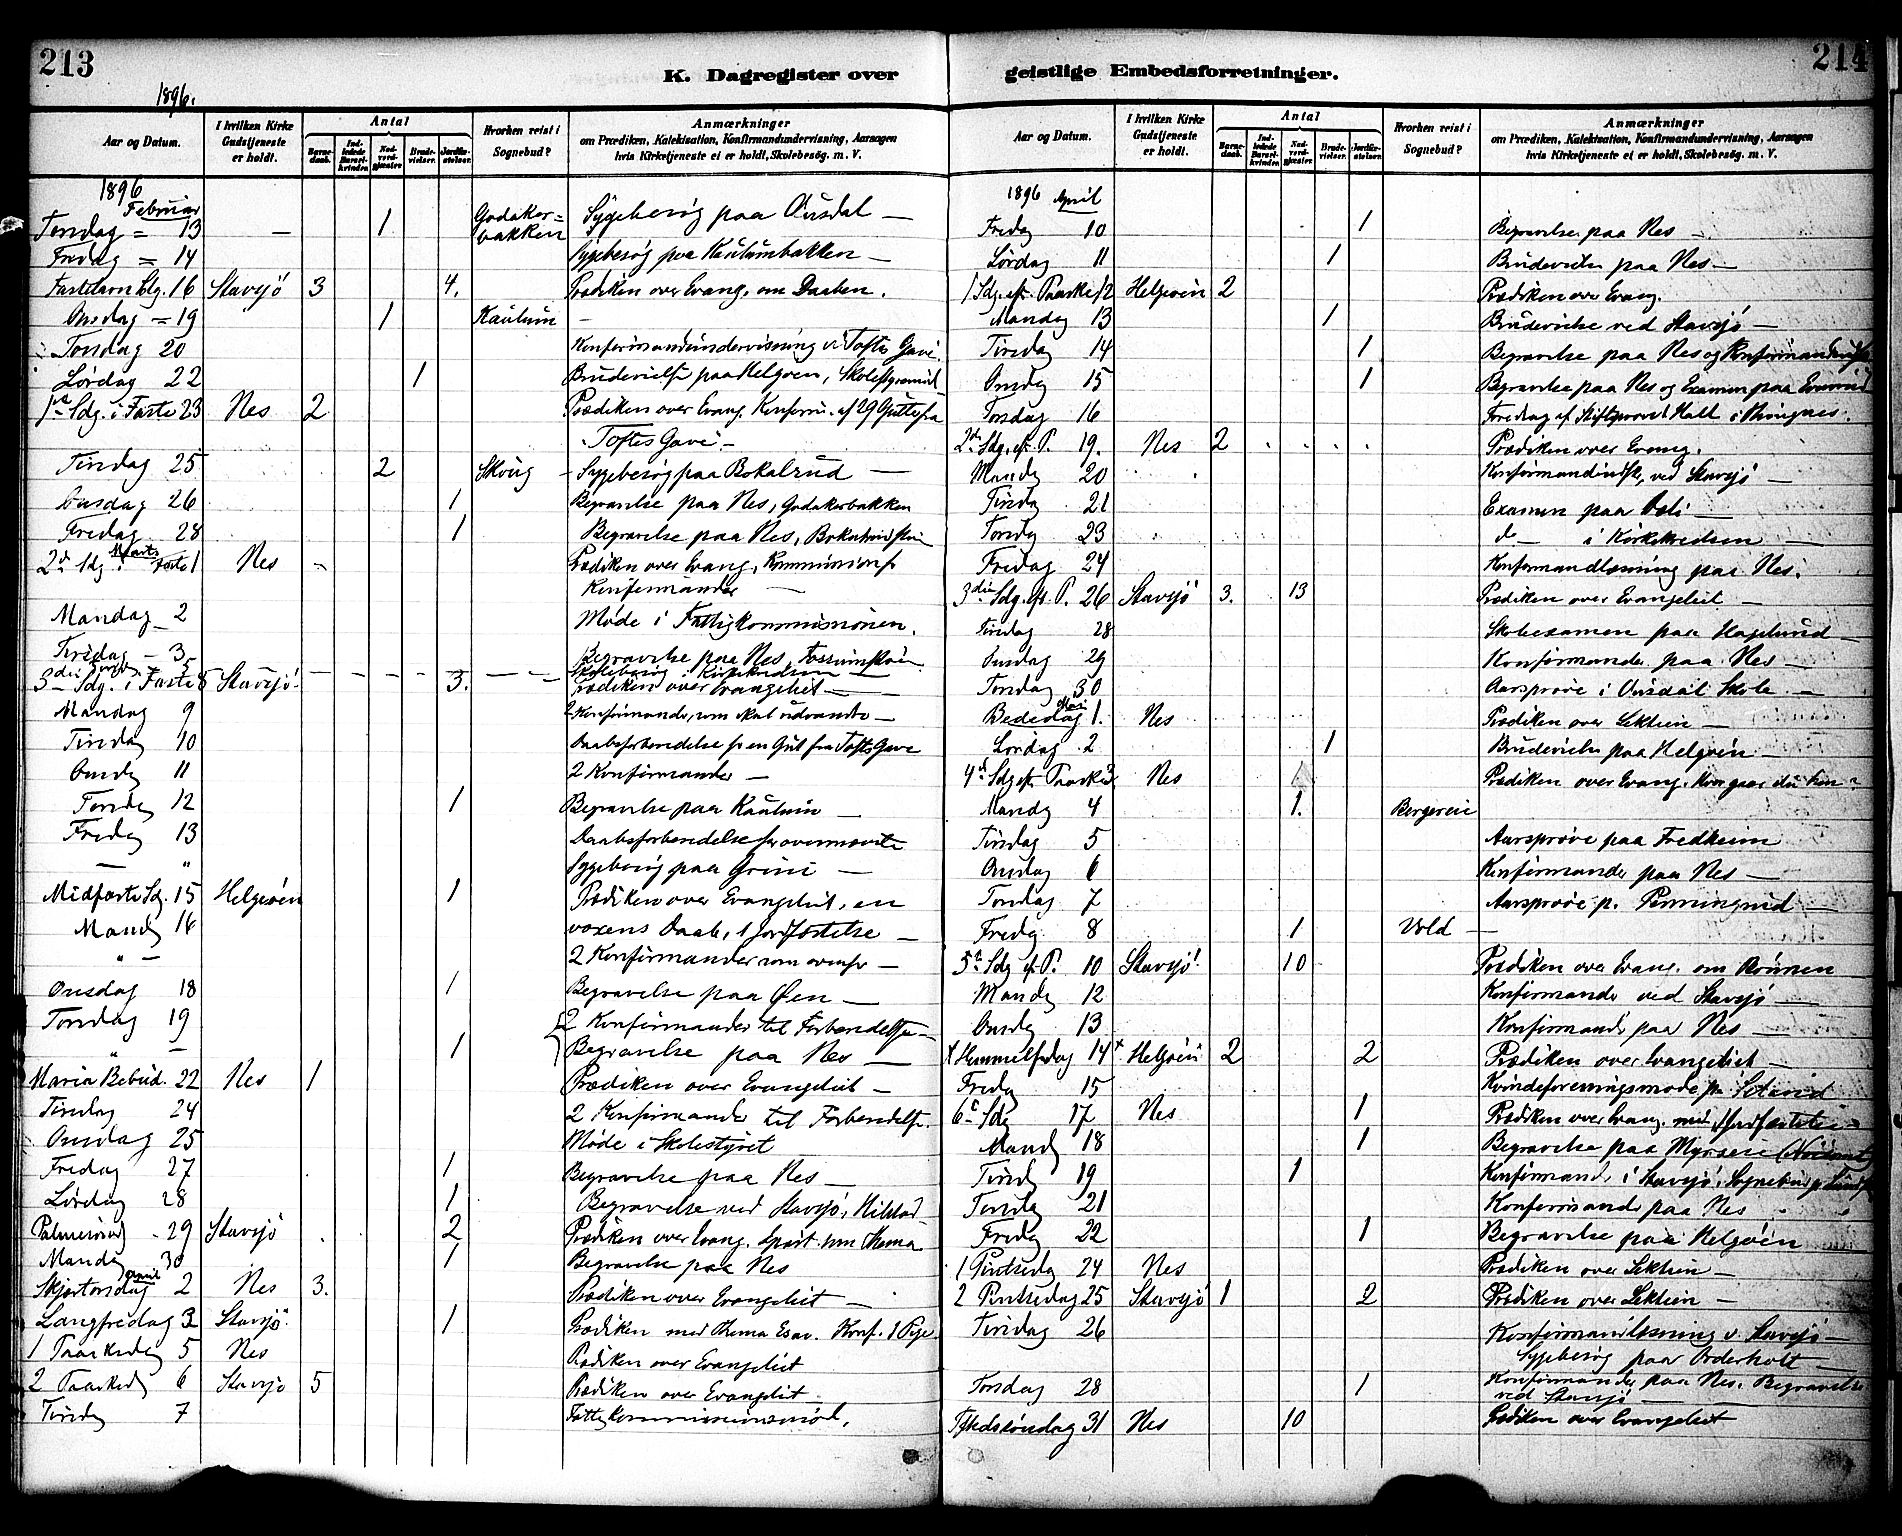 213
K. Dagregister over
1896.
Aar og Datum.
I hvilken Kirke Gudstjeneste er holdt.
Antal
Barnedaab.
Indledede Barselkvinder.
Nadverdgjæster.
Brudevielser.
Jordfæstelser.
Hvorhen reist i Sognebud?
Anmærkninger
om Prædiken, Katekisation, Konfirmandundervisning, Aarsagen
hvis Kirketjeneste ei er holdt, Skolebesøg. m. V.
1896
Februar
Torsdag = 13 — 1 Godaker=bakken Sygebesøg paa Oursdal —
Fredag = 14 Sygebesøg paa Kaulumbakken —
Fastelavn Sdg. 16 Stavsjö 3 4. Prædiken over Evang. om Daaben.
Onsdag = 19 1 Kaulum —
Torsdag 20 Konfirmandundervisning v. Toftes Gave.
Lørdag 22 1 Brudevielse paa Helgøen,
1ste Sdg. i Faste 23 Nes 2 Prædiken over Evang. Konfirm. af 29 Gutter fra
Toftes Gave. —
Tirsdag 25 2 Skoug — Sygebesøg paa Bokalrud —
Onsdag 26 1 Begravelse paa Nes, Godakerbakken
Fredag 28 1 Begravelse paa Nes,
Marts
2d Sdg. i Faste 1 Nes - Prædiken over Evang.,
Konfirmander —
Mandag 2 Møde i Fattigkommissionen.
Tirsdag — 3 Begravelse paa Nes,
Skolebesøg i Kirkekredsen
3die Sdg. i Faste 8 Stavsjö 3. Prædiken over Evangeliet —
Mandag 9 2 Konfirmander, som skal udvandre —
Tirsdag 10 Daabsforberedelse for en Gut fra Toftes Gave
Onsdg 11 2 Konfirmander —
Torsdg 12 1 Begravelse paa Kaulum —
Fredag 13 Daabsforberedelse for
— " Sygebesøg paa Grini —
Midfaste Sdg. 15 Helgøen 1 Prædiken over Evangeliet, en
Mandg 16 voxens Daab, 1 Jordfæstelse —
" — 2 Konfirmander som ovenfor —
Onsdag 18 1 Begravelse paa Øen —
Torsdag 19 2 Konfirmander til Forberedelse —
" — 1 Begravelse paa Nes —
Maria Bebud. 22 Nes 1 Prædiken over Evangeliet —
Tirsdag 24 2 Konfirmander til Forberedelse.
Onsdag 25 Møde i Skolestyret
Fredag 27 1 Begravelse paa Nes —
Lørdag 28 1 Begravelse ved Stavsjö,
Palmesønd. 29 Stavsjö 2 Prædiken over Evang.
Mandag 30 1 Begravelse paa Nes
April
Skjærtorsdag 2 Nes 3. Prædiken over Evangeliet —
Langfredag 3 Stavsjö 1 Prædiken med Thema Esav. Konf. 1 Pige
1 Paaskedag 5 Nes Prædiken over Evangeliet
2 Paaskedg 6 Stavsjö 5 Prædiken over Evangeliet.
Tirsdg 7 Fattigkommissionsmöde.
214
geistlige Embedsforretninger.
Aar og Datum.
I hvilken Kirke Gudstjeneste er holdt.
Antal
Barnedaab.
Indledede Barselkvinder.
Nadverdgjæster.
Brudevielser.
Jordfæstelser.
Hvorhen reist i Sognebud?
Anmærkninger
om Prædiken, Katekisation, Konfirmandundervisning, Aarsagen
hvis Kirketjeneste ei er holdt, Skolebesøg. m. V.
1896 April
Fredag 10 1 Begravelse paa Nes —
Lørdag 11 1 Brudevielse paa Nes —
1 Sdg. eft. Paaske 12 Helgøen 2 Prædiken over Evang.
Mandag 13 1 Brudevielse ved Stavsjö —
Tirsdag 14 1 Begravelse paa Nes og
Onsdg 15 1 Begravelse paa Nes og Examen paa
Torsdag 16 Foredrag af Stiftsprovst Hall i
2den Sdg. eft. P. 19. Nes 2 Prædiken over Evang.
Mandg 20 Konfirmandundv. ved Stavsjö —
Tirsdg 21 Examen paa
Torsdg 23 do — i Kirkekredsen —
Fredag 24 Konfirmandlæsning paa Nes.
3die Sdg. eft. P. 26 Stavsjö 3. 13 Prædiken over Evangeliet —
Tirsdag 28 Skoleexamen paa Hagelund —
Onsdag 29 Konfirmander paa Nes —
Torsdag 30 Aarsprøve i Oursdal Skole. —
Mai
Bededag 1. Nes Prædiken over Lektien —
Lørdag 2 1 Brudevielse paa Helgøen —
4de Sdg. eft. Paaske 3 Nes Prædiken over Evang. Hvor gaar du hen?
Mandg 4 1. Bergevin
Tirsdag 5 Aarsprøve paa Fredheim
Onsdag 6 Konfirmander paa Nes —
Torsdag 7 Aarsprøve p. —
Fredg 8 1 Vold —
5te Sdg. eft. P. 10 Stavsjö 10 Prædiken over Evang. om Bønnen
Mandg 12 Konfirmander ved Stavsjö —
Onsdg 13 Konfirmander paa Nes —
+ Himmelfrdag 14 + Helgøen 2 2 Prædiken over Evangeliet —
Fredg 15 Kvindeforeningsmøde p.
6te Sdg 17 Nes 1 Prædiken over Evang. med 1 Jordfæstelse —
Mandg 18 1 Begravelse paa
Tirsdg 19 1 Konfirmander i Stavsjö,
Torsdg 21 Konfirmander paa Nes
Fredg 22 1 Begravelse paa Helgøen
1 Pintsedg 24 Nes Prædiken over Lektien —
2 Pintsedag 25 Stavsjö 1 2 Prædiken over Lektien —
Tirsdag 26 Konfirmandlæsning v. Stavsjö —
Sygebesøg paa —
Torsdag 28 1 Konfirmander paa Nes. Begravelse
ved Stavsjö —
Trefoldssöndag 31 Nes 10 Prædiken over Evangeliet